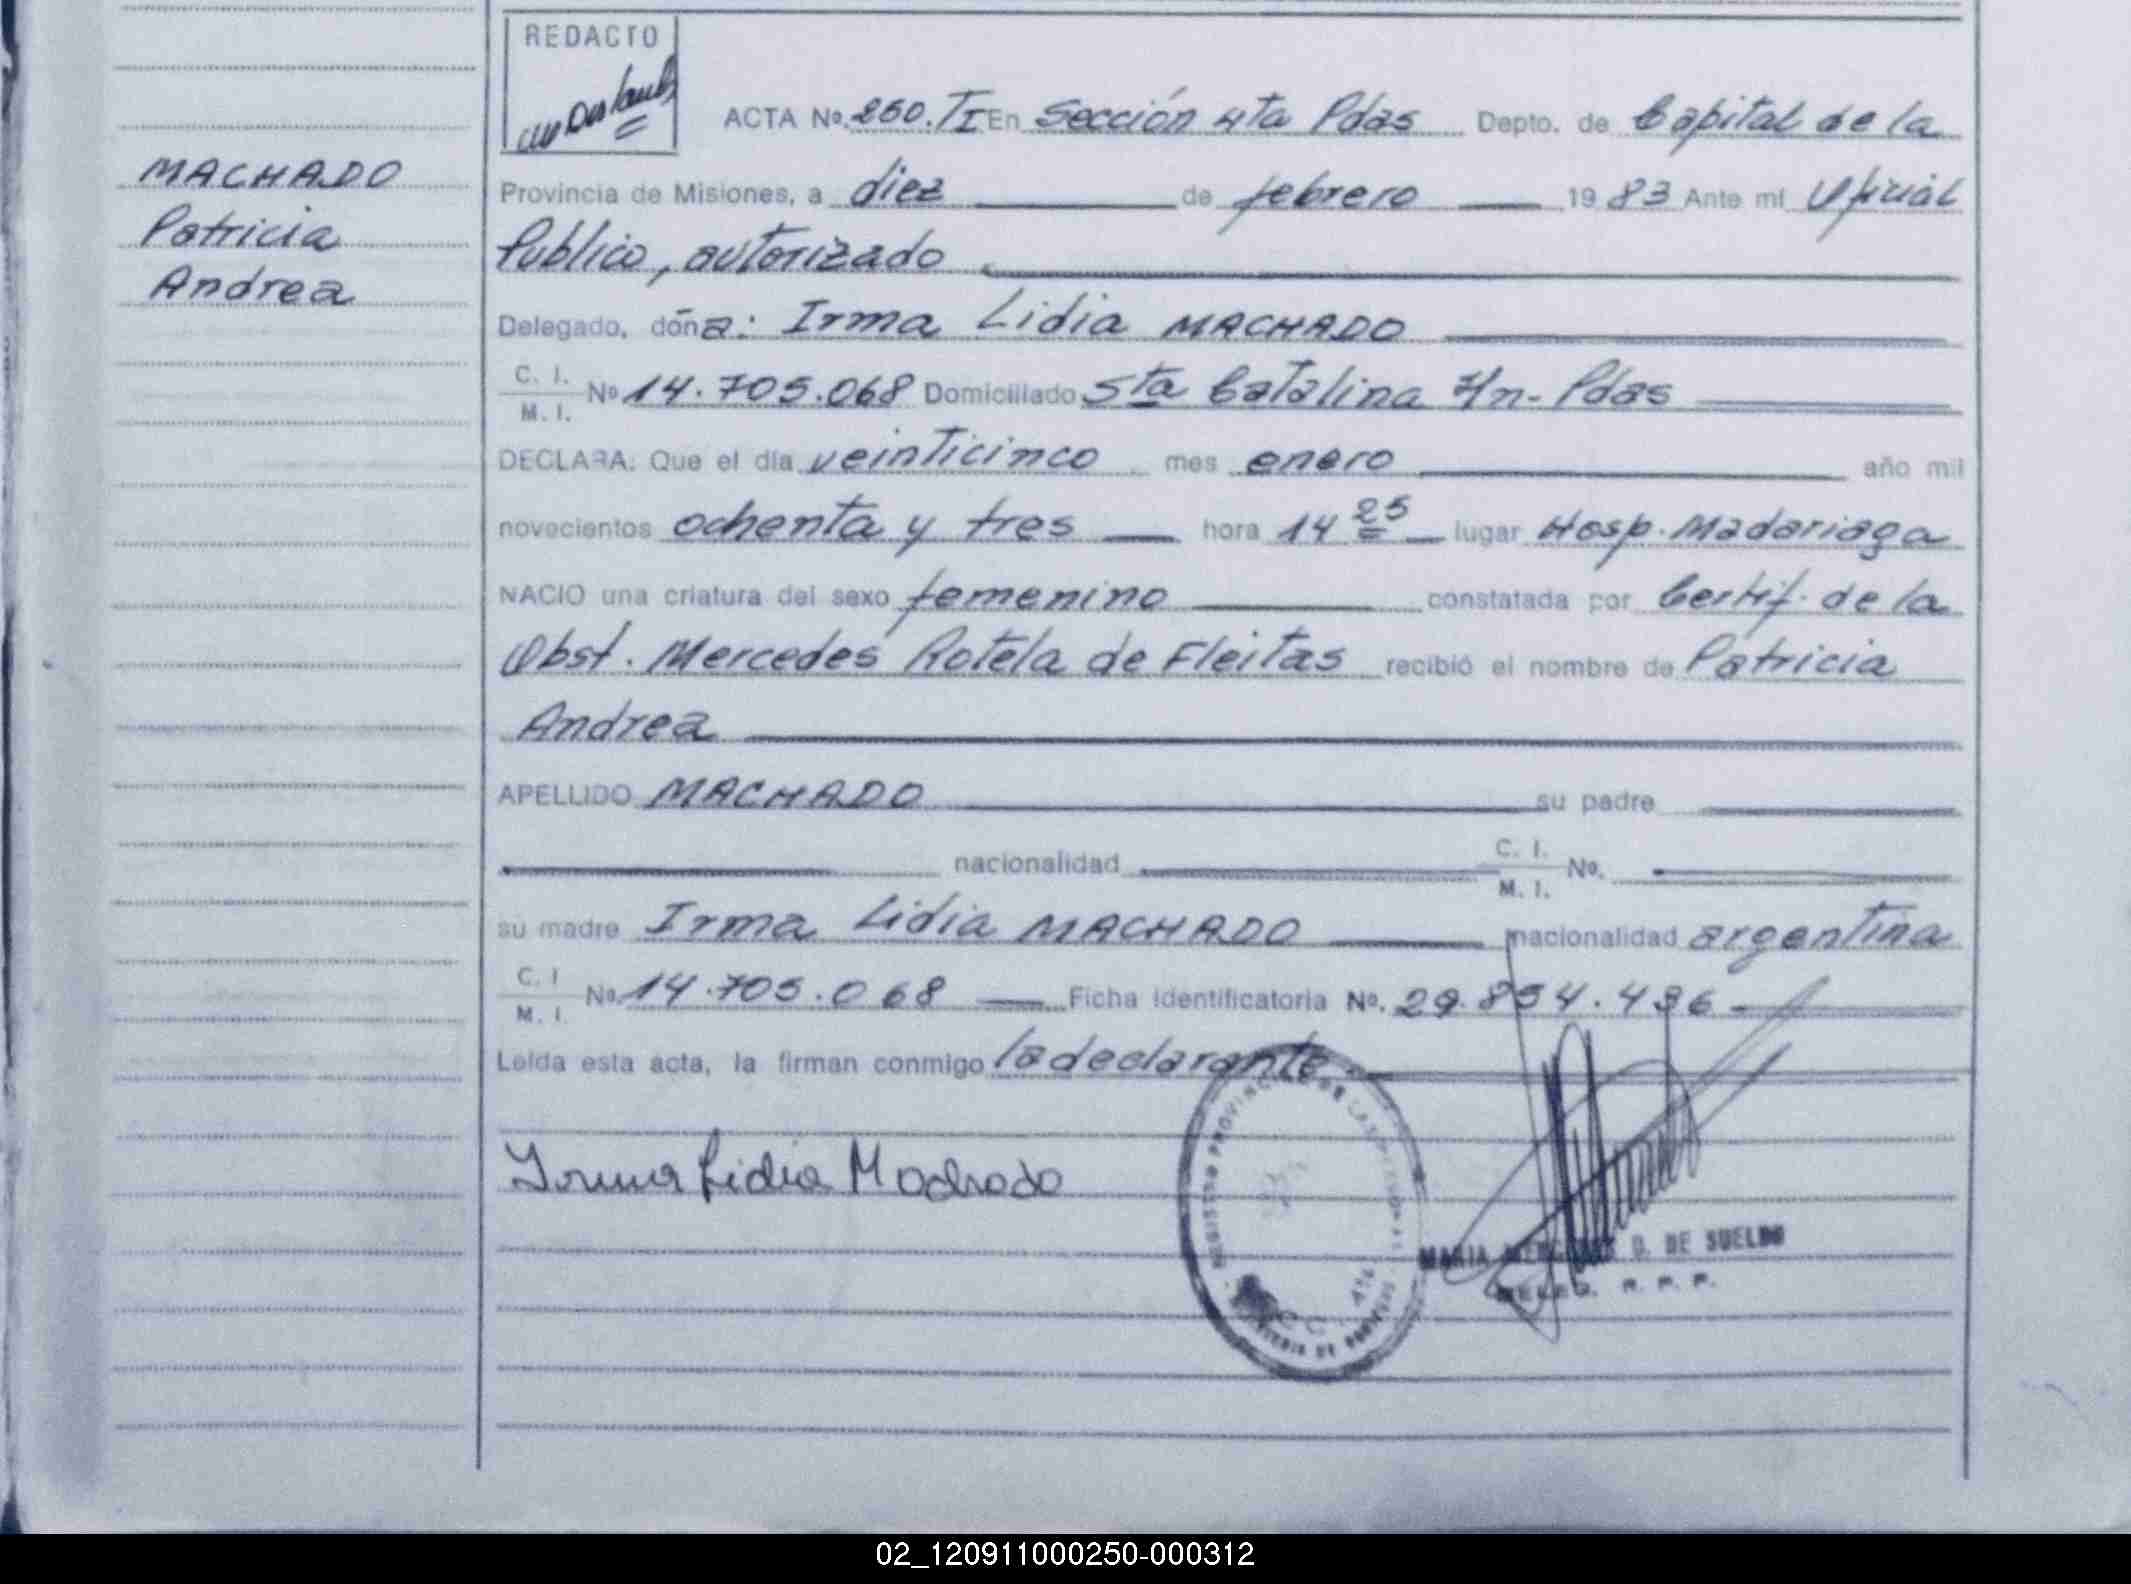 REDACTO
ACTA No. 250. TI En Sección 4ta Pdas Depto. de Capital de la
MACHADO
Patricia
Andrea
Provincia de Misiones, a diez de febrero 1983 Ante mí Oficial
Publico, autorizado
Delegado, dóna: Irma Lidia MACHADO
C. I.
M. I.
No 14.705.068 Domiciliado Sta Catalina 7/n - Pdas
DECLARA: Que el día veinticinco mes enero año mil
novecientos ochenta y tres hora 14 25 lugar Hosp. Madariaga
NACIO una criatura del sexo femenino constatada por Certif. de la
Obst. Mercedes Rotela de Fleitas recibió el nombre de Patricia
Andrea
APELLIDO MACHADO su padre
nacionalidad C. I.
M. I. No.
su madre Irma Lidia MACHADO nacionalidad argentina
C. I
M. I.
No. 14.705.068 Ficha Identificatoria No. 29.834.436
Leída esta acta, la firman conmigo la declarante
Irma Lidia Machado
MARIA D. DE SUELDO
R. P. P.
02_120911000250-000312